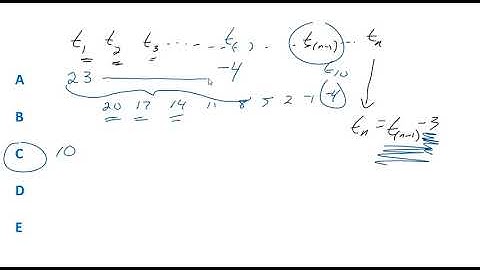 t₁ t₂ t₃ ...... t( ) . . t(n-1) ... tₙ
A 23 -4 t₁₀
20 17 14 11 8 5 2 -1 -4
B tₙ = t(n-1) -3
C 10
D
E